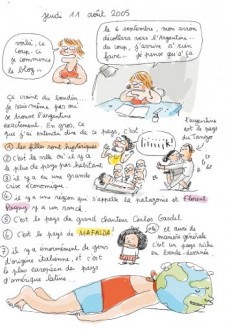 Jeudi 11 août 2005
voilà, ce
coup-ci
je commence
le blog...
le 6 septembre, mon avion
décollera vers l'Argentine...
du coup, j'arrive à rien
faire... je pense qu'à ça
ça vient du boudin...
je sais même pas où
se trouve l'argentine
exactement. En gros, ce
que j'ai entendu dire de ce pays, c'est
l'argentine
est le pays
du
① les filles sont hystériques
② c'est la ville où il y a
le plus de psys par habitant
③ il y a eu une grande
crise économique
④ il y a une région qui s'appelle la patagonie et Florent
Pagny y a un ranch
⑤ C'est le pays du grand chanteur Carlos Gardel
⑥ c'est le pays de MAFALDA
et aussi de
manière générale
c'est un pays riche
en bande dessinée
⑦ il y a énormément de gens
d'origine italienne, et c'est le
plus européen des pays
d'amérique latine...